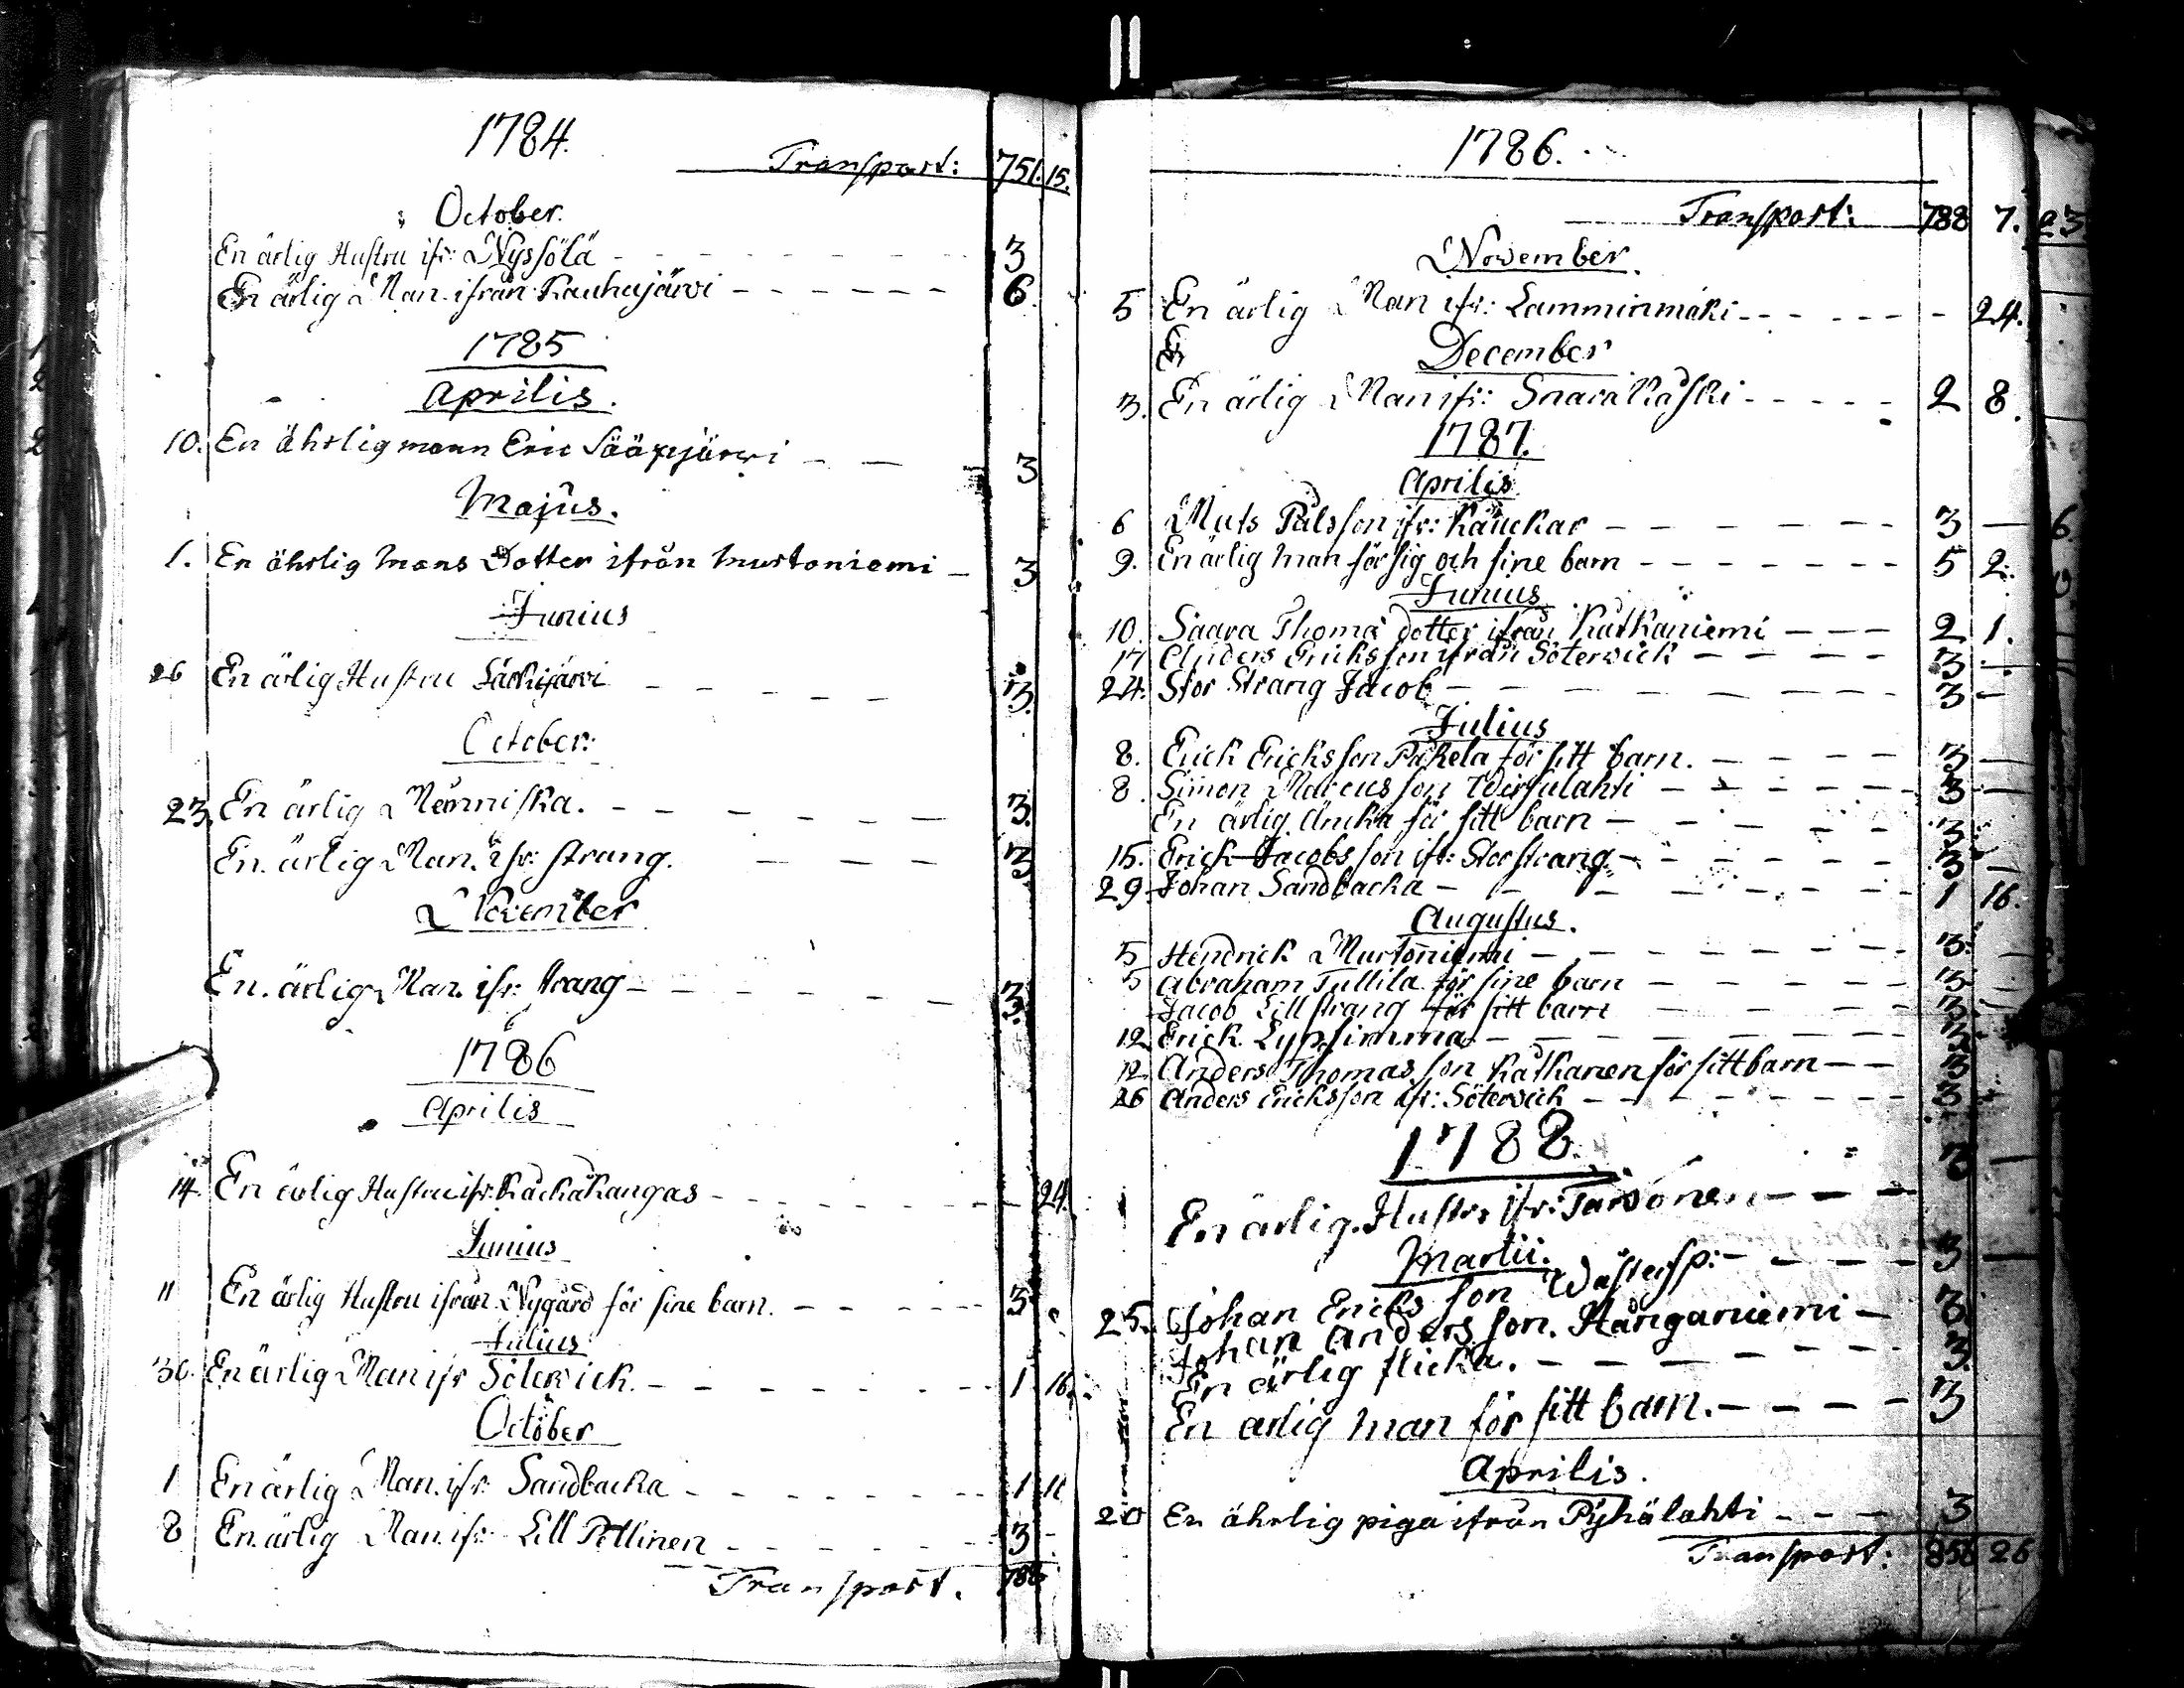 1784.
Transport: 751. 15.
October.
En ärlig Hustru ifr: Nyssölä - - - 3
En ärlig Man. ifrån Kauhajärvi - - - - - - 6.
1785
Aprilis.
10. En ährlig mann Eric Sääxjärwi - - 3
Majus.
1. En ährlig Mans Dotter ifrån Murtoniemi - 3
Junius
26 En ärlig Hustru Särkijärvi - - - - - 3.
October:
23. En ärlig Menniska. - - - - - - 3.
En. ärlig Man. ifr: strang. - - - 3
November
En. ärlig Man. ifr: strang - - - - - - 3.
1786
Aprilis
14. En ärlig Hustru ifr: Kackäkangas - - - - - - 24.
Junius
11 En ärlig Hustru ifrån Nygård för sine barn. - - - - - 3
Julius
30. En ärlig Man ifr Söterwick. - - - - - - 1 16.
October
1 En ärlig Man. ifr: Sandbacka - - - - - - - 1 11
8 En. ärlig Man. ifr: Lill Pettinen - - - - - - 3 -
Transport. 788
1786.
Transport: 788 7.
November.
5 En ärlig Man ifr: Lamminmäki - - - - - - 24.
En
December
3. En ärlig Man ifr: Snarakåski - - - - - 2 8.
1787.
Aprilis
6 Mats Pålsson ifr: Käuckar - - - - - - 3 -
9. En ärlig Man för sig och sine barn - - - - - - - 5 2.
Junius
10. Saara Thomä dotter ifrån Katkaniemi - - - 2 1.
17 Anders Ericksson ifrån Söterwick - - - - - 3 -
24. Stor Strang Jacob - - - - - - - - 3 -
Julius
8. Erick Ericksson Päkela för sitt barn. - - - - 3 -
8. Simon Marcusson Wirsulahti - - - - - - 3 -
En ärlig Äncka för sitt barn - - - - - - 3.
15. Erick Jacobsson ifr: Storstrang - - - - - - - 3 -
29. Johan Sandbacka - - - - - - - - 1 16.
Augustus.
5 Hendrick Murtoniemi - - - - - - - - 3. -
5 Abraham Tullila för sine barn - - - - - - 3 -
Jacob Lillstrang för sitt barn - - - - - - 3 -
12 Erick Lypsimma - - - - - - - - 3
12. Anders Thomasson Katkanen för sitt barn - - 3
26 Anders Ericksson ifr: Söterwick - - - - - - - - 3
1788.
3 -
En ärlig. Hustru ifr: Tarsonen - - -
Martii.
Johan Ericksson Wästersp: - - - - - 3 -
25. Johan Andersson. Hånganiemi - 3
En ärlig flicka. - - - - - - - 3.
En ärlig man för sitt barn. - - - - - 3
Aprilis.
20 En ährlig piga ifrån Pyhälahti - - - 3
Transport: 858 26